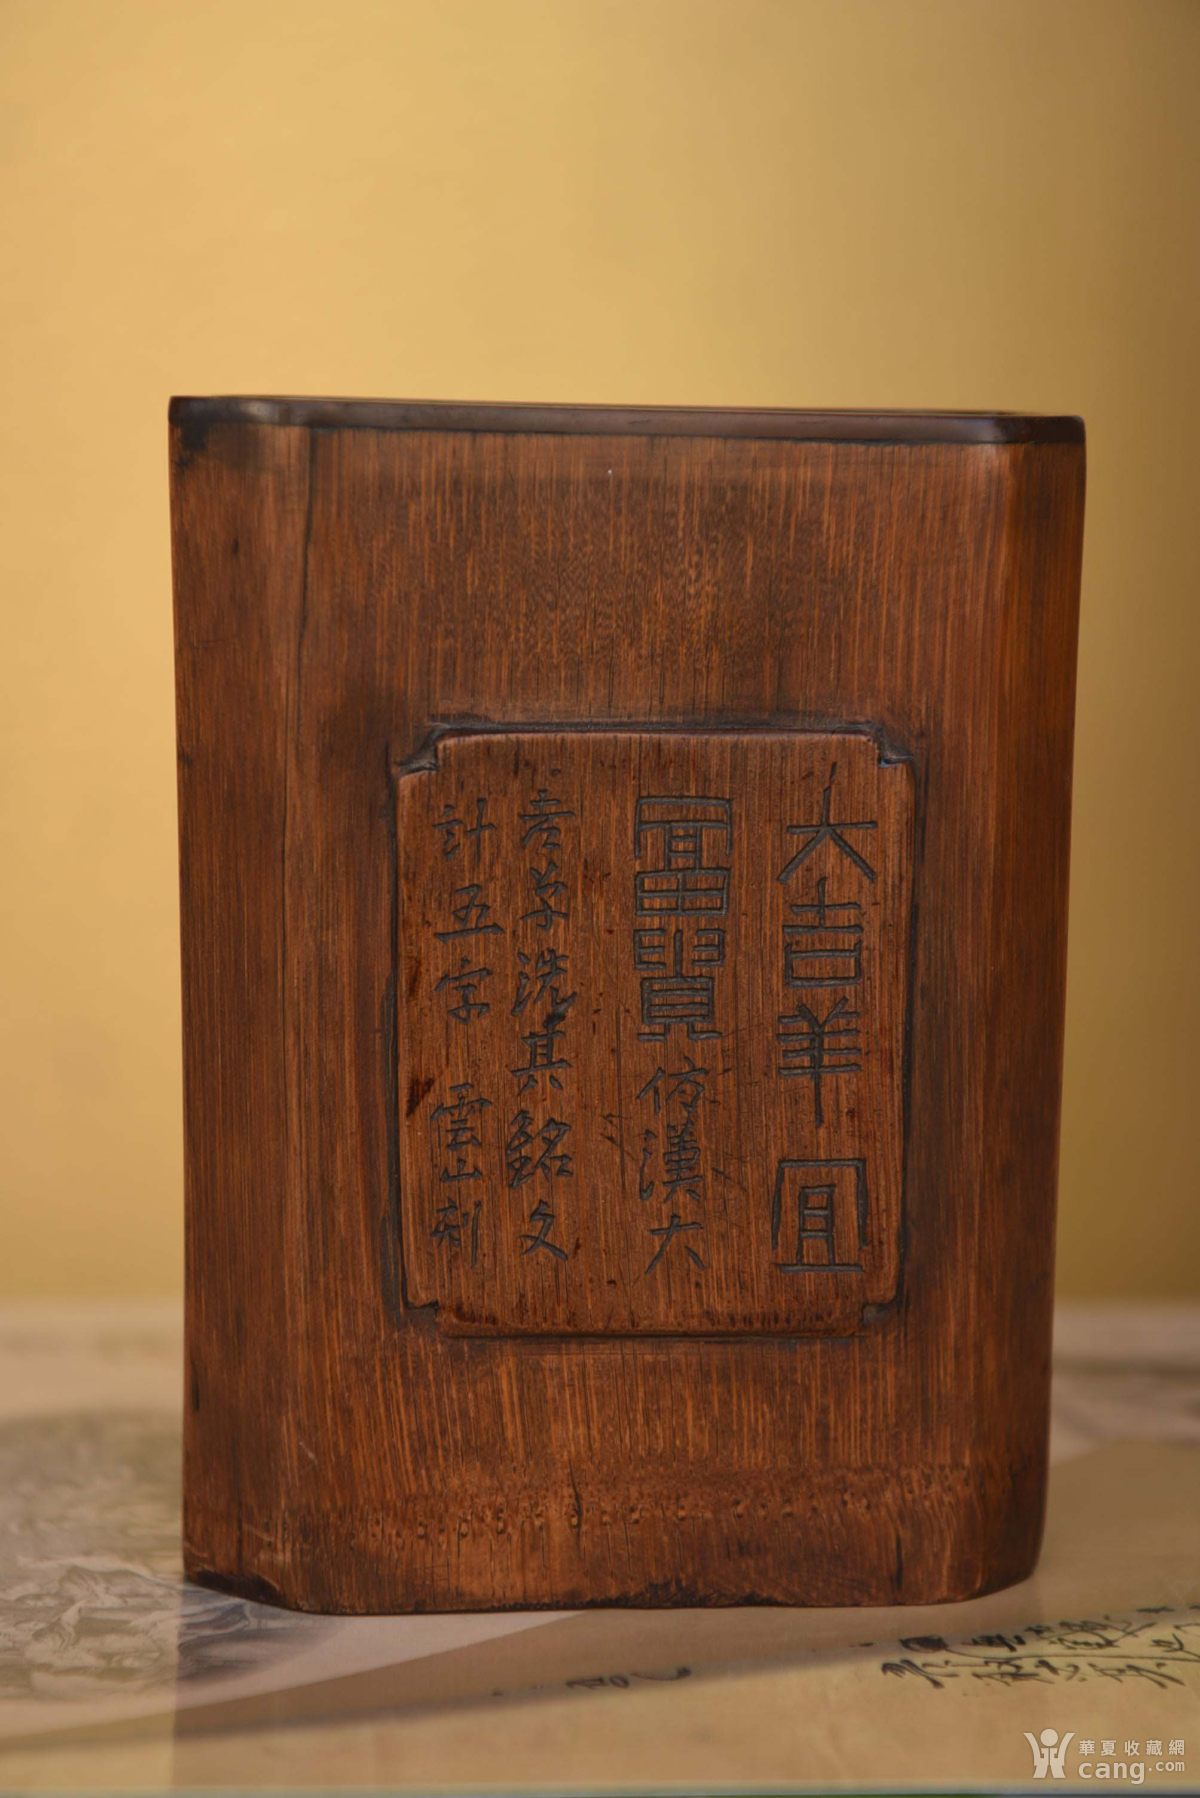 大吉羊宜
富貴仿漢大
吉羊洗其銘文
計五字 雲山刻
華夏收藏網
cang.com